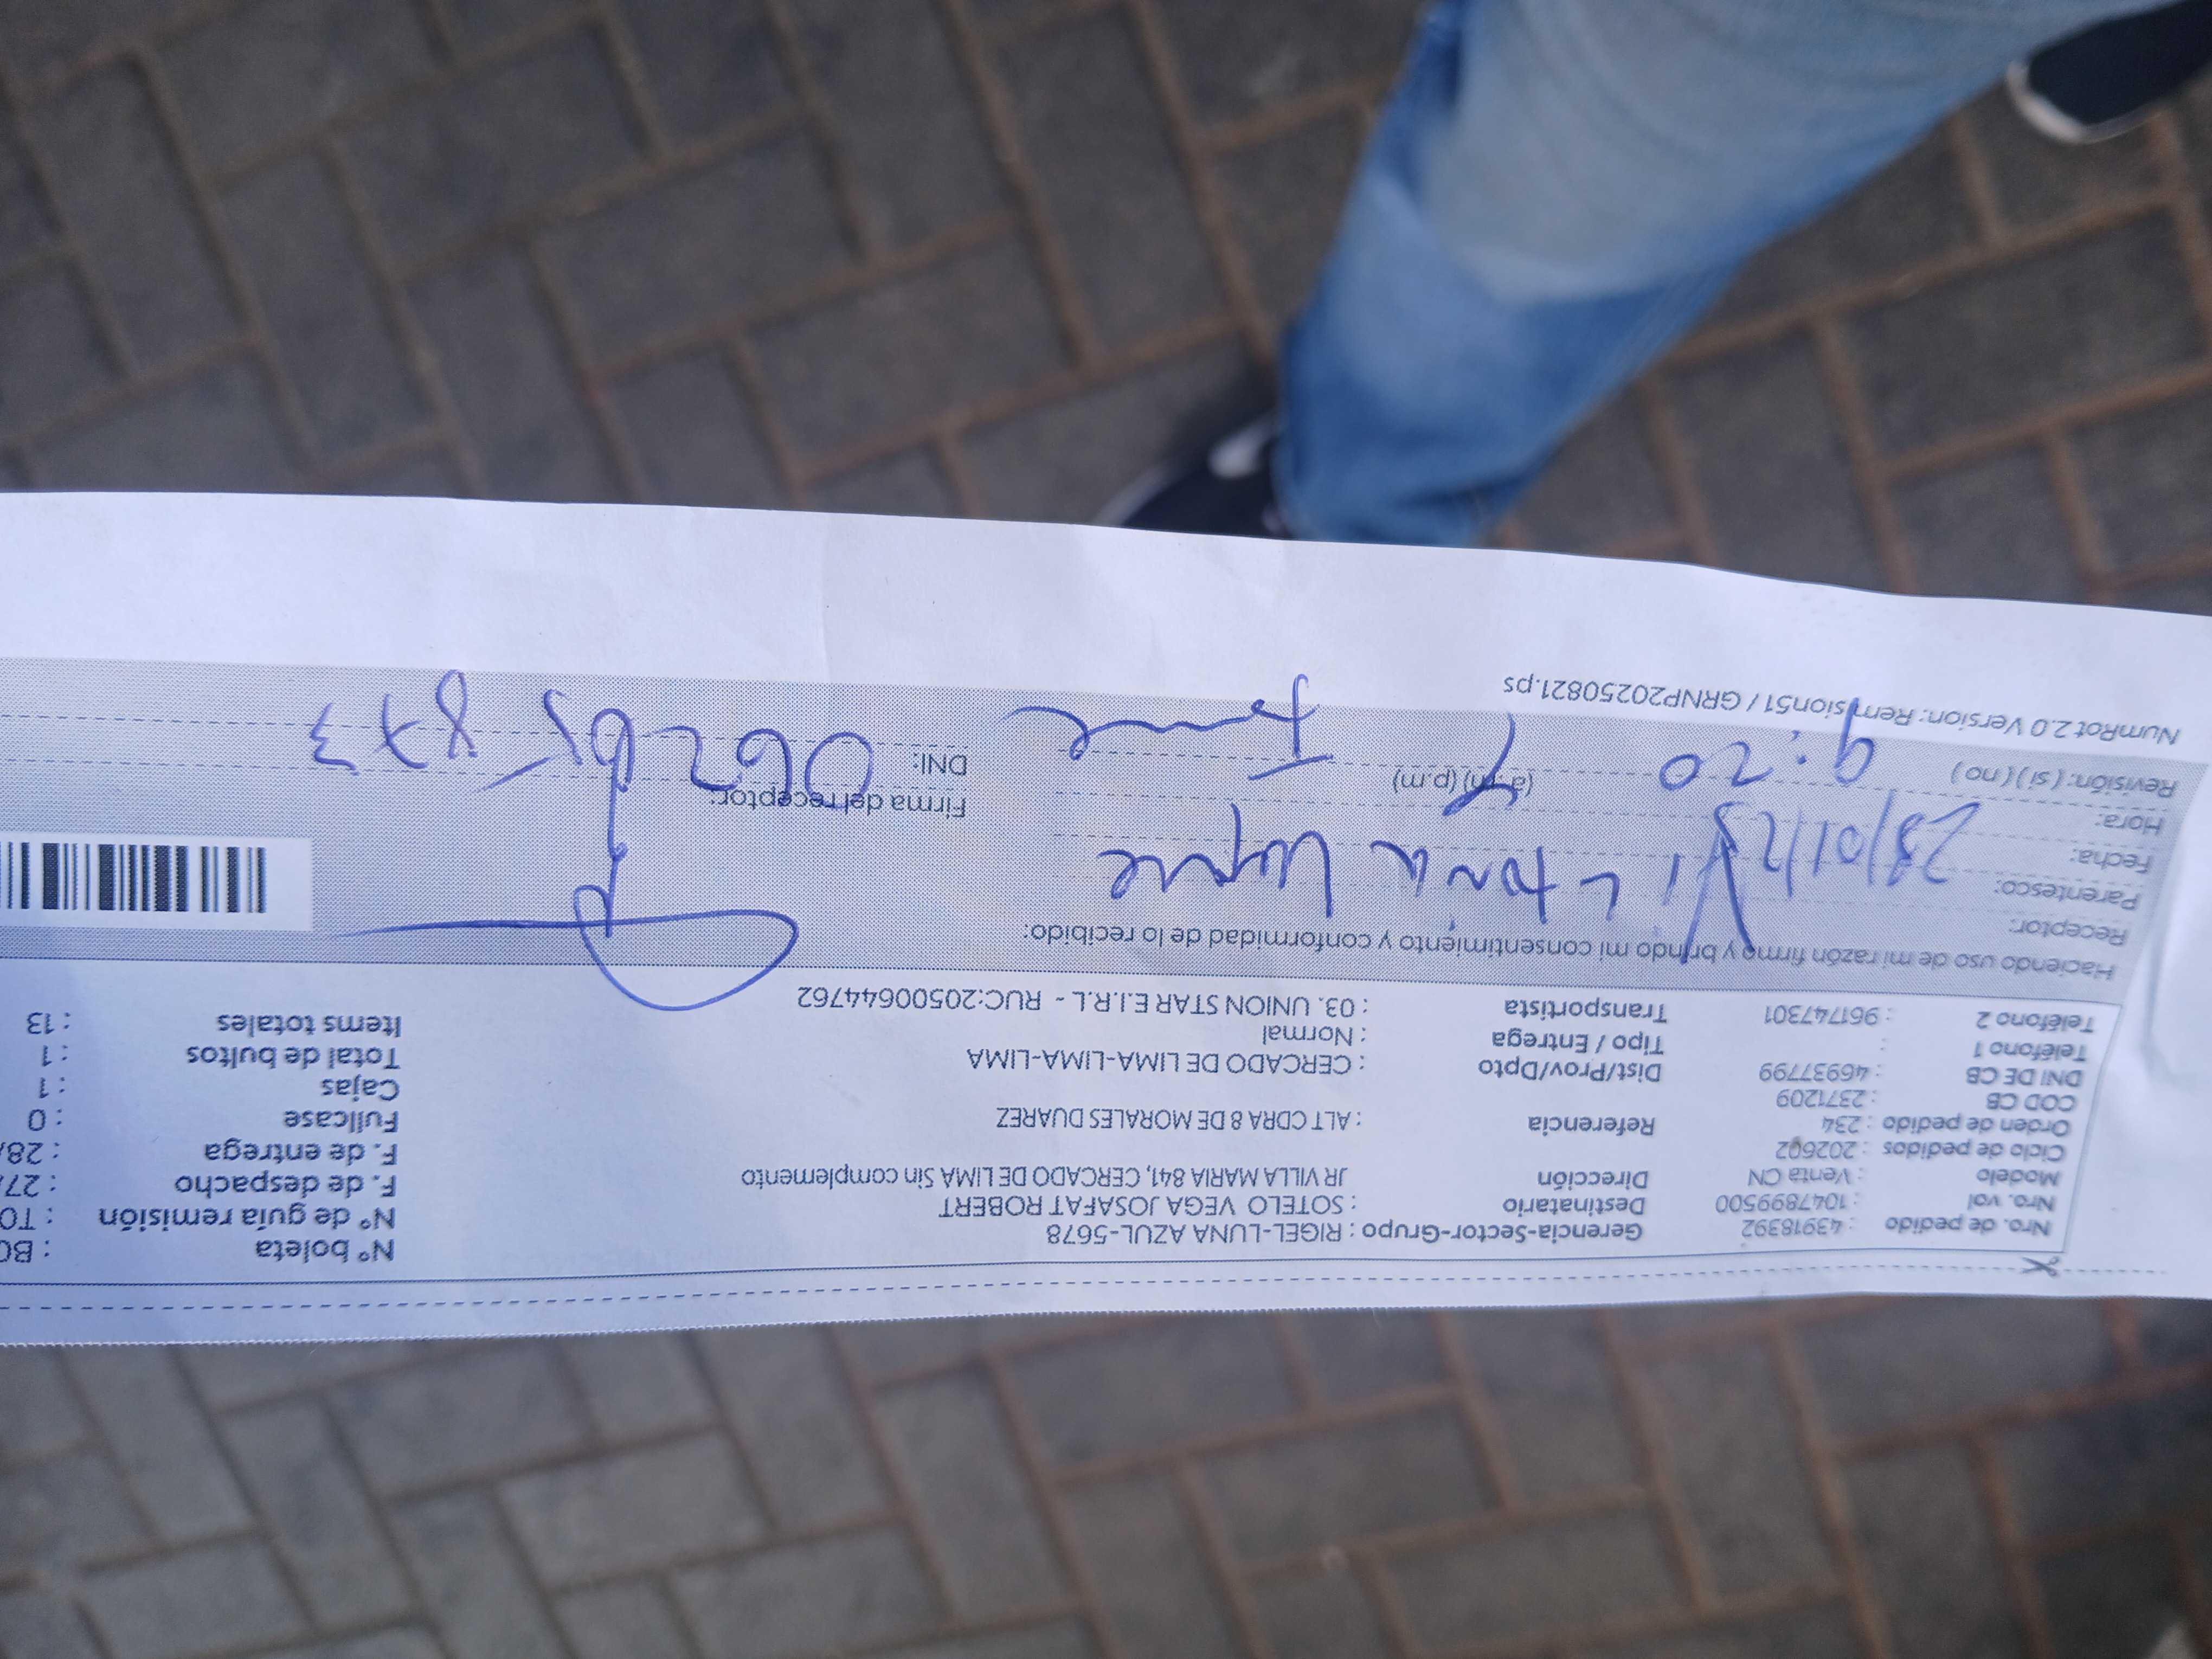 Nro. de pedido : 43918392 Gerencia-Sector-Grupo : RIGEL-LUNA AZUL-5678 N° boleta : B0
Nro. val : 1047899500 Destinatario : SOTELO VEGA JOSAFAT ROBERT N° de guía remisión : T0
Modelo : Venta CN Dirección JR VILLA MARIA 841, CERCADO DE LIMA Sin complemento F. de despacho : 27/
Ciclo de pedidos : 202602 F. de entrega : 28/
Orden de pedido : 234 Referencia : ALT CDRA 8 DE MORALES DUAREZ Fullcase : 0
COD CB : 2371209 Cajas : 1
DNI DE CB : 46937799 Dist/Prov/Dpto : CERCADO DE LIMA-LIMA-LIMA Total de bultos : 1
Teléfono 1 : Tipo / Entrega : Normal Items totales : 13
Teléfono 2 : 961747301 Transportista : 03. UNION STAR E.I.R.L - RUC:20500644762
Haciendo uso de mi razón firmo y brindo mi consentimiento y conformidad de lo recibido:
Receptor:
Parentesco:
Fecha:
Hora: 9:20 (a.m) (p.m) Firma del receptor:
Revisión: ( si ) ( no ) DNI:
NumRot 2.0 Version: Remision51 / GRNP20250821.ps